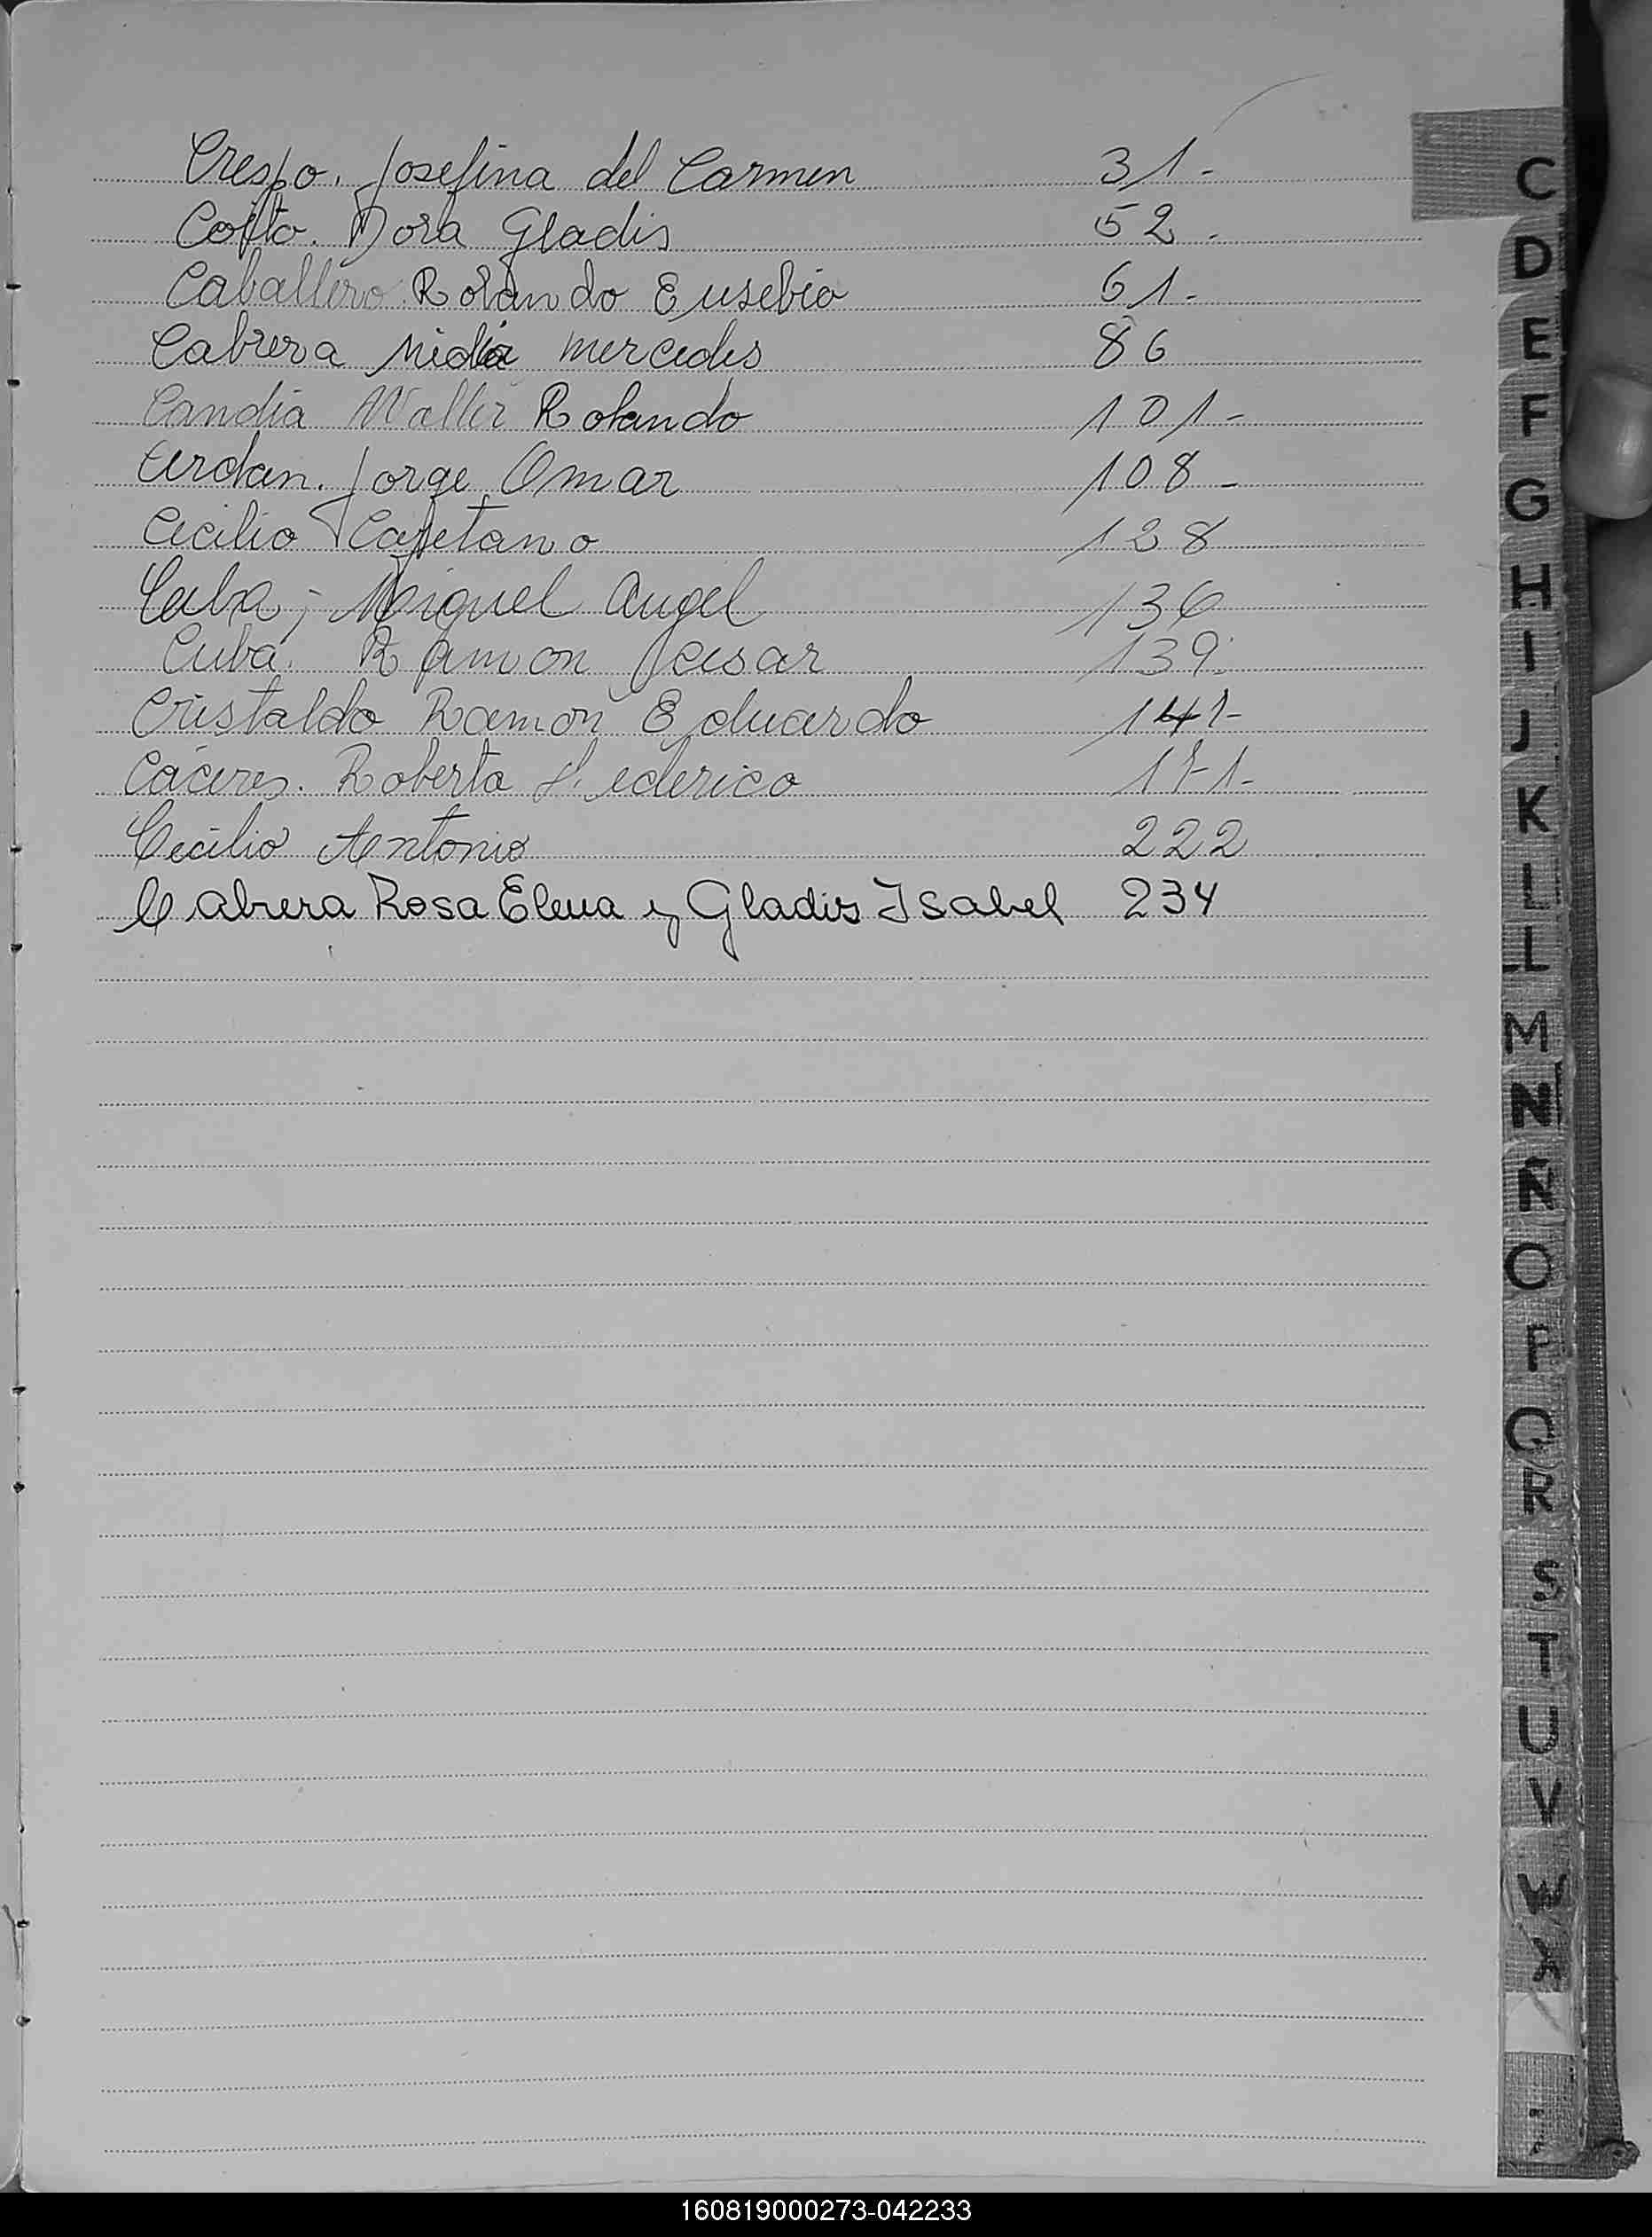 Crespo. Josefina del Carmen 31-
Dora Gladis 52-
Caballero Rolando Eusebio 61-
Cabrera Nidia mercedes 86
Candia Walter Rolando 101-
Jorge Omar 108-
Cecilio Cayetano 128
Cuba, Miguel Angel 136
Cuba. Ramon Cesar 139.
Cristaldo Ramon Eduardo 141-
Cáceres. Roberto Federico 171-
Cecilio Antonio 222
Cabrera Rosa Elena y Gladis Isabel 234
C
D
E
F
G
H
I
J
K
L
M
N
Ñ
O
P
Q
R
S
T
U
V
W
X
160819000273-042233